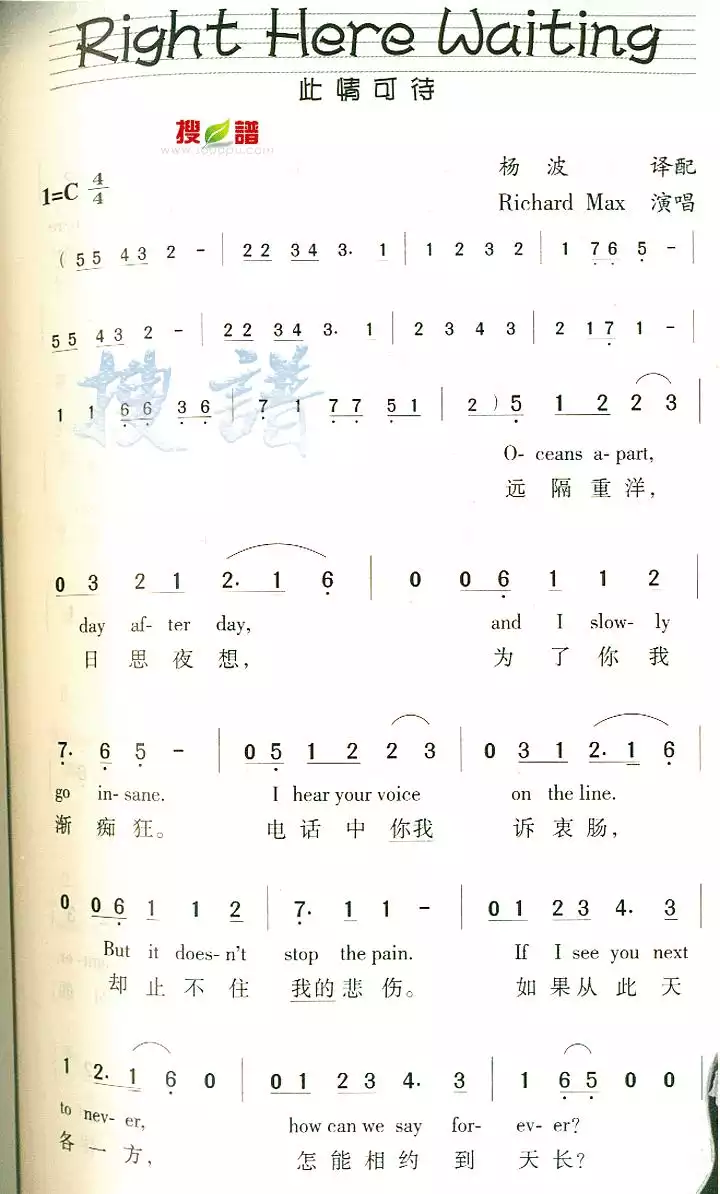 Right Here Waiting
此情可待
搜谱
杨波 译配
1=C 4/4
Richard Max 演唱
( 5 5 4 3 2 - | 2 2 3 4 3. 1 | 1 2 3 2 | 1 7 6 5 - |
5 5 4 3 2 - | 2 2 3 4 3. 1 | 2 3 4 3 | 2 1 7 1 - |
1 1 6 6 3 6 | 7 1 7 7 5 1 | 2 ) 5 1 2 2 3 |
O- ceans a- part,
远隔重洋,
0 3 2 1 2. 1 6 | 0 0 6 1 1 2
day af- ter day, and I slow- ly
日思夜想, 为了你我
7. 6 5 - | 0 5 1 2 2 3 | 0 3 1 2. 1 6
go in- sane. I hear your voice on the line.
渐痴狂。 电话中你我 诉衷肠,
0 0 6 1 1 2 | 7. 1 1 - | 0 1 2 3 4. 3
But it does- n't stop the pain. If I see you next
却止不住 我的悲伤。 如果从此天
1 2. 1 6 0 | 0 1 2 3 4. 3 | 1 6 5 0 0
to nev- er, how can we say for- ev- er?
各一方, 怎能相约到 天长?